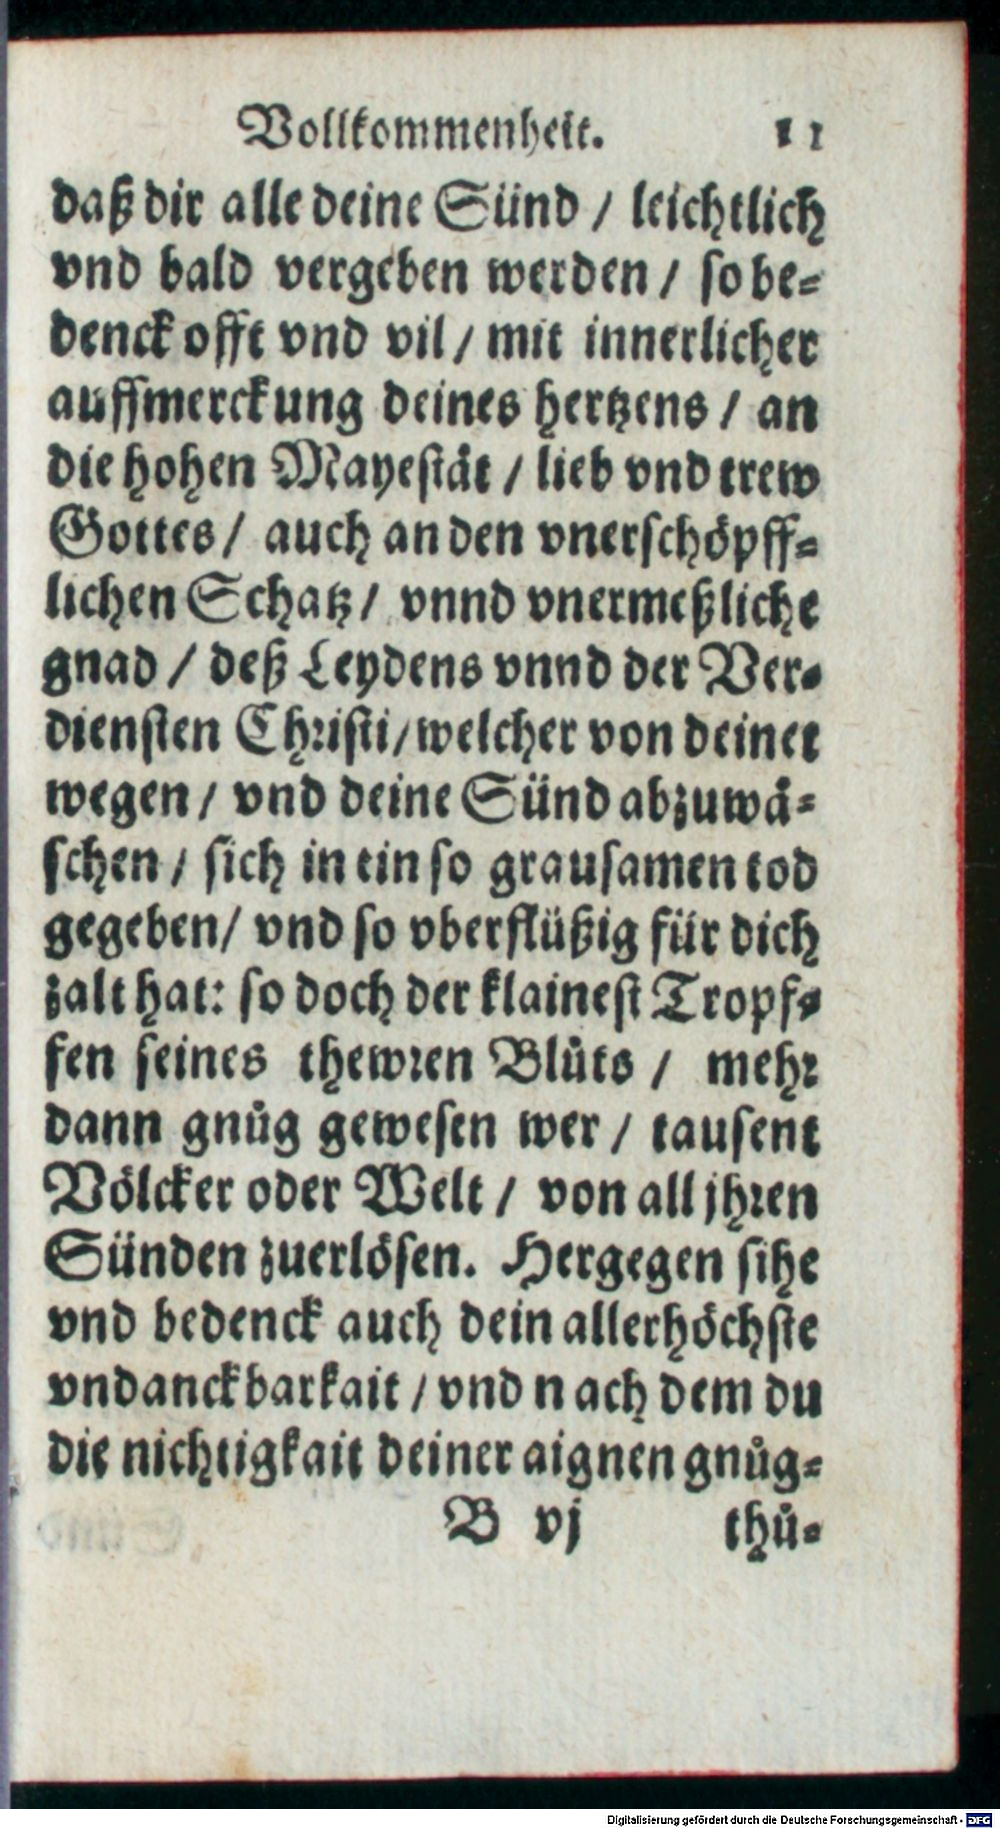 Vollkommenheit. 11
daß dir alle deine Sünd / leichtlich
vnd bald vergeben werden / so be-
denck offt vnd vil / mit innerlicher
auffmerckung deines hertzens / an
die hohen Mayestät / lieb vnd trew
Gottes / auch an den vnerschöpff-
lichen Schatz / vnnd vnermeßliche
gnad / deß Leydens vnnd der Ver-
diensten Christi / welcher von deinet
wegen / vnd deine Sünd abzuwä-
schen / sich in ein so grausamen tod
gegeben / vnd so vberflüßig für dich
zalt hat: so doch der klainest Tropf-
fen seines thewren Blůts / mehr
dann gnůg gewesen wer / tausent
Völcker oder Welt / von all jhren
Sünden zuerlösen. Hergegen sihe
vnd bedenck auch dein allerhöchste
vndanckbarkait / vnd nach dem du
die nichtigkait deiner aignen gnůg-
B vj thů-
Digitalisierung gefördert durch die Deutsche Forschungsgemeinschaft - DFG